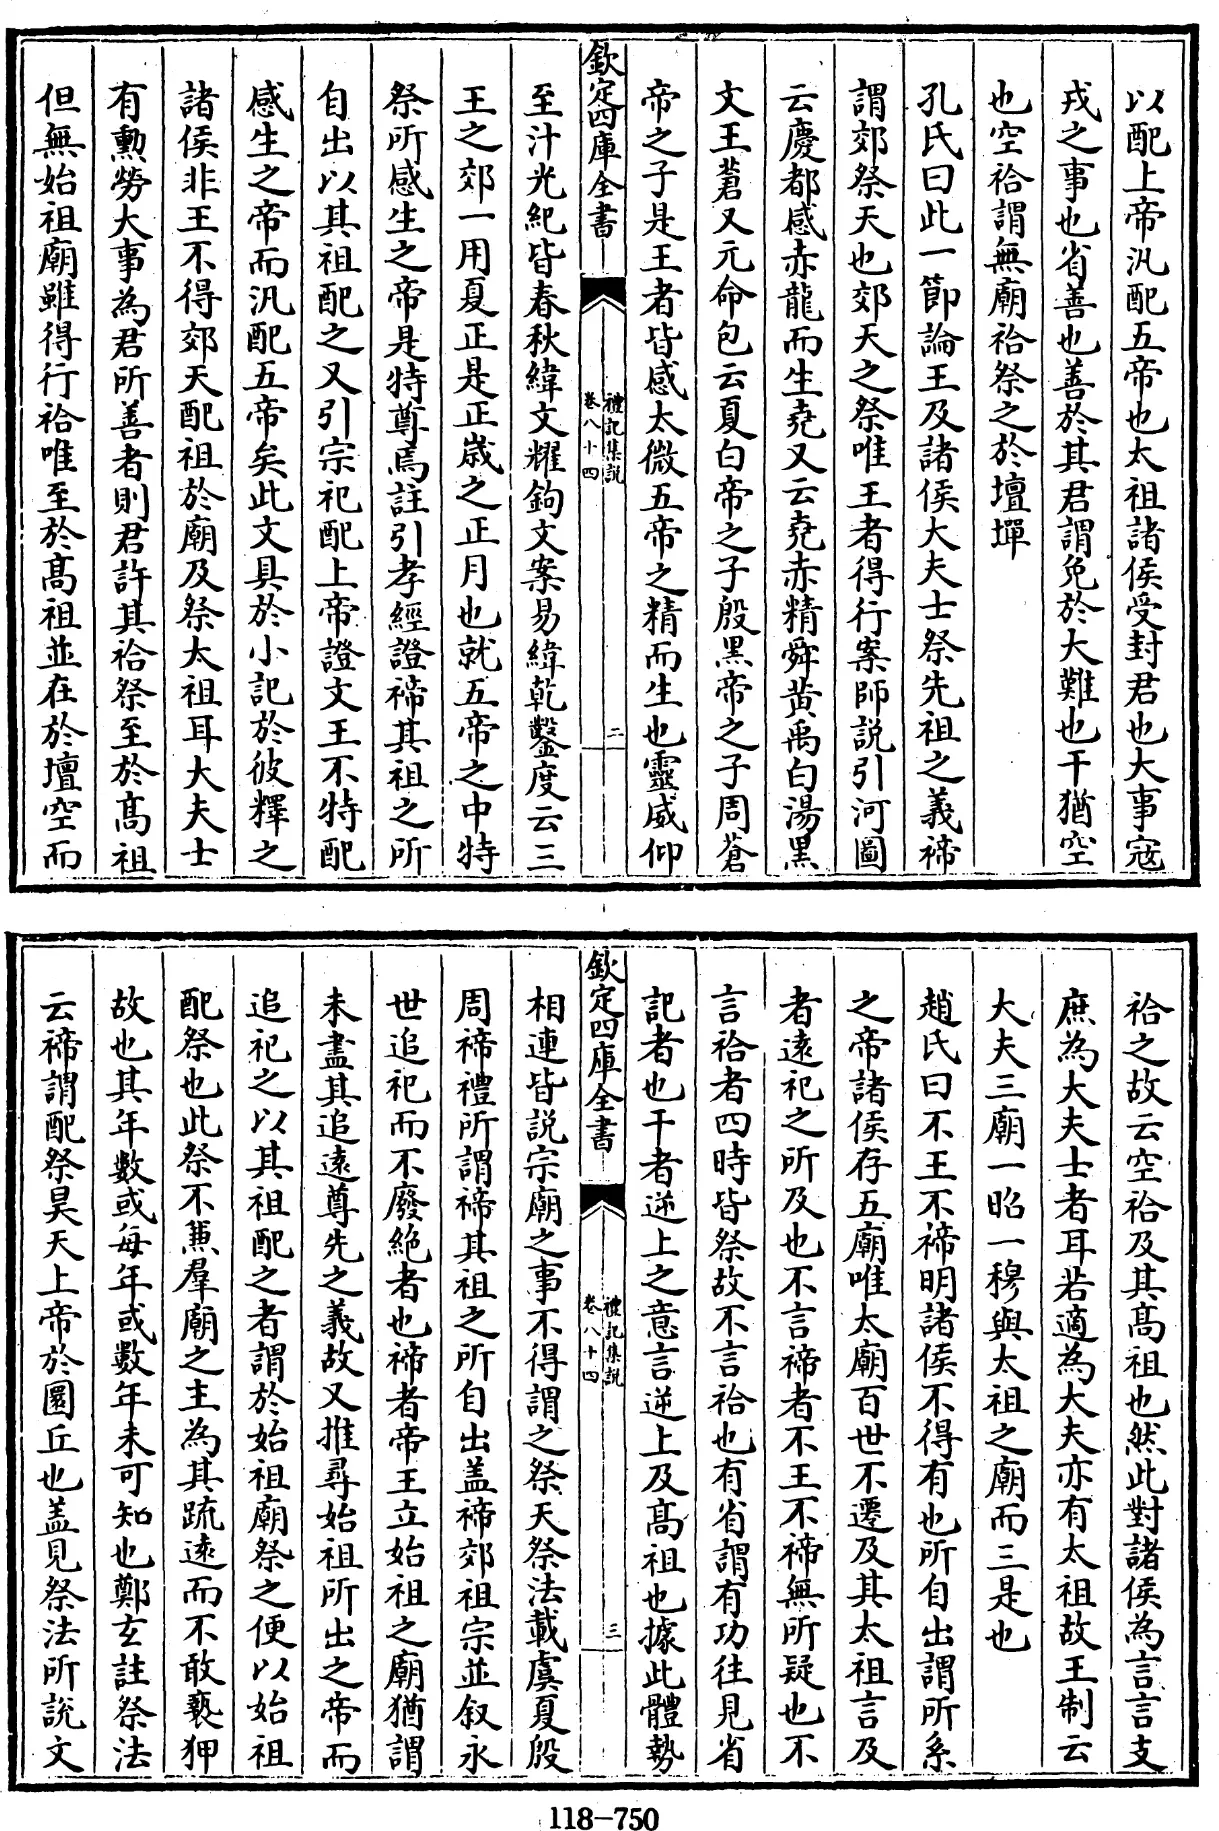 以配上帝汎配五帝也太祖諸侯受封君也大事寇
戎之事也省善也善於其君謂免於大難也干猶空
也空祫謂無廟祫祭之於壇墠
孔氏曰此一節論王及諸侯大夫士祭先祖之義禘
謂郊祭天也郊天之祭唯王者得行案師説引河圖
云慶都感赤龍而生堯又云堯赤精舜黄禹白湯黒
文王蒼又元命包云夏白帝之子殷黒帝之子周蒼
帝之子是王者皆感太微五帝之精而生也靈威仰
欽定四庫全書
禮記集説
卷八十四
二
至汁光紀皆春秋緯文耀鉤文案易緯乾鑿度云三
王之郊一用夏正是正歲之正月也就五帝之中特
祭所感生之帝是特尊焉註引孝經證禘其祖之所
自出以其祖配之又引宗祀配上帝證文王不特配
感生之帝而汎配五帝矣此文具於小記於彼釋之
諸侯非王不得郊天配祖於廟及祭太祖耳大夫士
有勲勞大事為君所善者則君許其祫祭至於髙祖
但無始祖廟雖得行祫唯至於髙祖並在於壇空而
祫之故云空祫及其髙祖也然此對諸侯為言言支
庶為大夫士者耳若適為大夫亦有太祖故王制云
大夫三廟一昭一穆與太祖之廟而三是也
趙氏曰不王不禘明諸侯不得有也所自出謂所系
之帝諸侯存五廟唯太廟百世不遷及其太祖言及
者逺祀之所及也不言禘者不王不禘無所疑也不
言祫者四時皆祭故不言祫也有省謂有功往見省
記者也干者逆上之意言逆上及髙祖也據此體勢
欽定四庫全書
禮記集説
卷八十四
三
相連皆説宗廟之事不得謂之祭天祭法載虞夏殷
周禘禮所謂禘其祖之所自出盖禘郊祖宗並叙永
世追祀而不廢絶者也禘者帝王立始祖之廟猶謂
未盡其追逺尊先之義故又推尋始祖所出之帝而
追祀之以其祖配之者謂於始祖廟祭之便以始祖
配祭也此祭不兼羣廟之主為其疏逺而不敢褻狎
故也其年數或每年或數年未可知也鄭玄註祭法
云禘謂配祭昊天上帝於圜丘也盖見祭法所説文
118-750